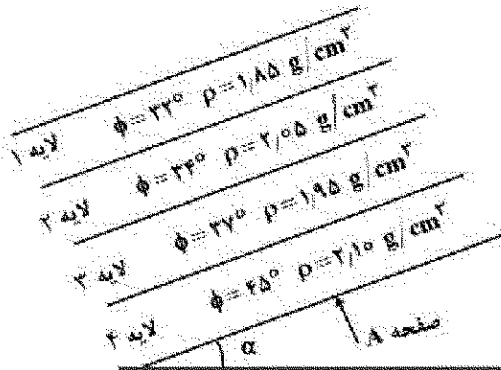 لایه ۱ φ=۳۲° ρ=۱٫۸۵ g/cm³
لایه ۲ φ=۳۴° ρ=۲٫۰۵ g/cm³
لایه ۳ φ=۳۷° ρ=۱٫۹۵ g/cm³
لایه ۴ φ=۴۵° ρ=۲٫۱۰ g/cm³
α صفحه A